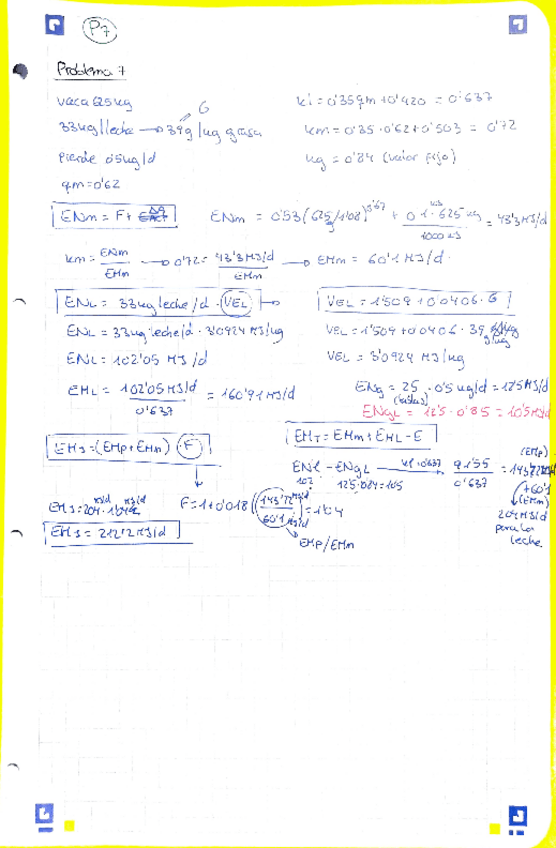 P7
Problema 7
vaca 625kg
33kg/leche → 39g/kg grasa
G
Pierde 0'5kg/d
qm=0'62
kl = 0'35qm+0'420 = 0'637
km = 0'35·0'62+0'503 = 0'72
kg = 0'84 (valor fijo)
ENm = F+
ENm = 0'53(625/1'08)^0'67 + 0'1·625 kg / 1000 = 43'3MJ/d
km = ENm/EMm → 0'72 = 43'3MJ/d / EMm → EMm = 60'1MJ/d.
ENL = 33kg leche/d · VEL
VEL = 1'509+0'0406·G
ENL = 33kg leche/d · 3'0924 MJ/kg
VEL = 1'509+0'0406·39 g/kg
ENL = 102'05 MJ/d
VEL = 3'0924 MJ/kg
EML = 102'05MJ/d / 0'637 = 160'91MJ/d
ENg = 25 · 0'5 kg/d = 12'5MJ/d
ENgL = 12'5 · 0'85 = 10'5MJ/d
EMs=(EMp+EMm) F
EMT = EMm+EML-E
ENl - ENgL → kl 0'637 → 91'55 / 0'637
102
12'5·0'84=10'5
(EMp)
+60'1
(EMm)
204MJ/d
para la
leche.
F=1+0'018(143'72MJ/d / 60'1MJ/d)=1'04
EMP/EMm
EMs = 212'2MJ/d